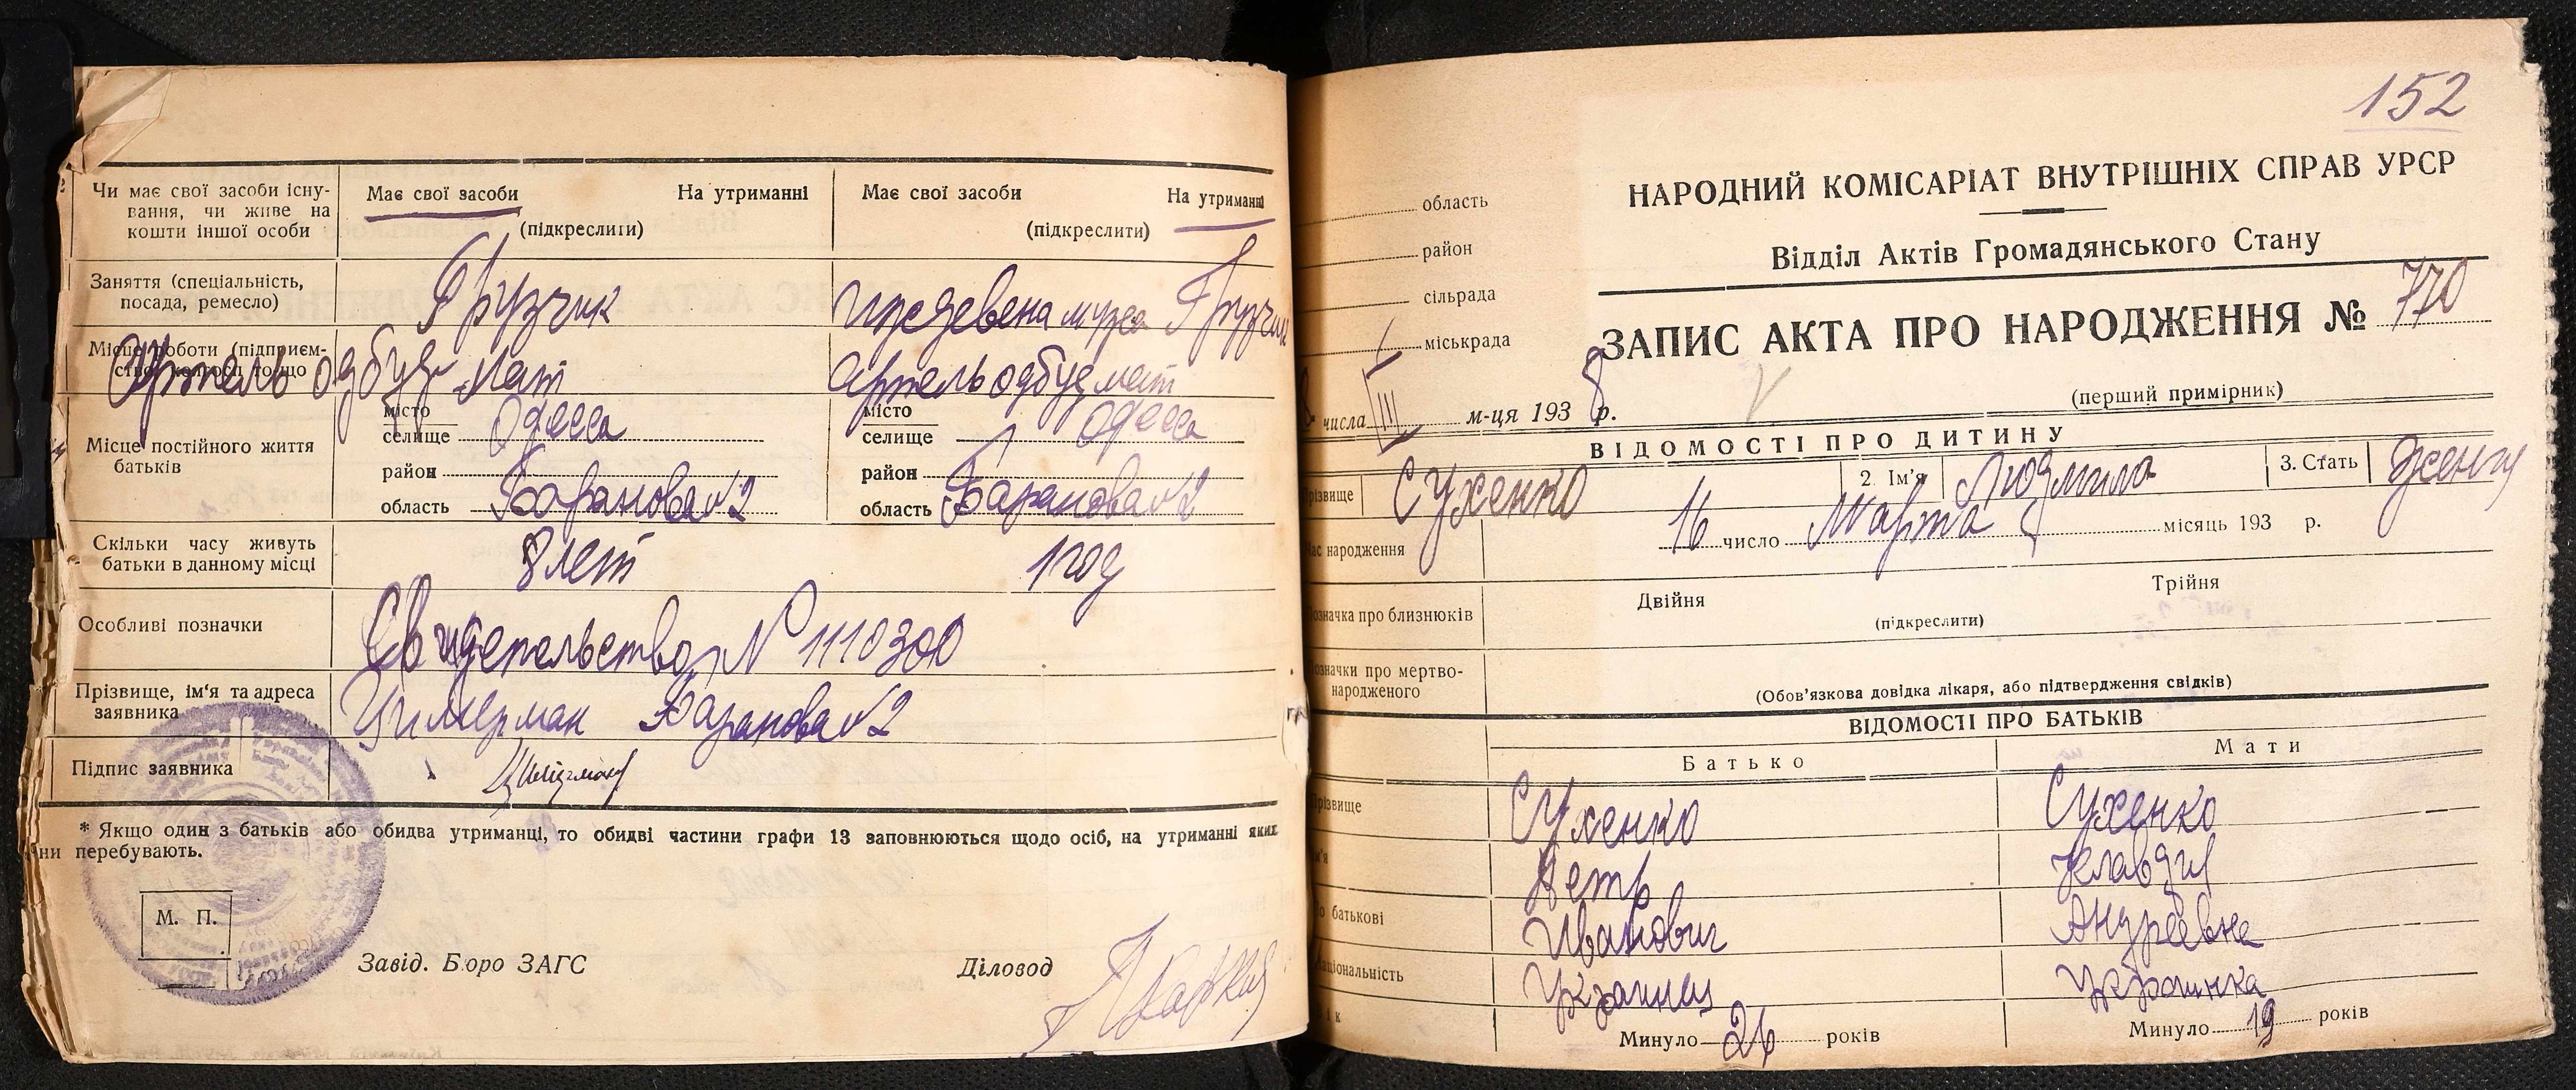 Чи має свої засоби існу-
вання, чи живе на
кошти іншої особи
Має свої засоби На утриманні
(підкреслити)
Має свої засоби На утриманні
(підкреслити)
Заняття (спеціальність,
посада, ремесло)
Грузчик
Грузчик
Місце роботи (підприєм-
Артель одбуд мат
Артель одбудмат
Місце постійного життя
батьків
місто
селище Одесса
район
область Баранова №2
місто
селище Одесса
район
область Баранова №2
Скільки часу живуть
батьки в данному місці
8 лет
1 год
Особливі позначки
Свидетельство № 1110300
Прізвище, ім'я та адреса
заявника
Цимерман Баранова №2
Підпис заявника
* Якщо один з батьків або обидва утриманці, то обидві частини графи 13 заповнюються щодо осіб, на утриманні яких
ни перебувають.
М. П.
Завід. Бюро ЗАГС
Діловод
152
область
район
сільрада
міськрада
числа III м-ця 1938 р.
НАРОДНИЙ КОМІСАРІАТ ВНУТРІШНІХ СПРАВ УРСР
Відділ Актів Громадянського Стану
ЗАПИС АКТА ПРО НАРОДЖЕННЯ № 770
(перший примірник)
ВІДОМОСТІ ПРО ДИТИНУ
Прізвище Сухенко 2. Ім'я Людмила 3. Стать
Час народження 16 число Марта місяць 193 р.
Позначка про близнюків
Двійня Трійня
(підкреслити)
Позначки про мертво-
народженого
(Обов'язкова довідка лікаря, або підтвердження свідків)
ВІДОМОСТІ ПРО БАТЬКІВ
Батько Мати
Прізвище Сухенко Сухенко
Ім'я Петр Клавдия
По батькові Иванович Андреевна
Національність Украинец Украинка
Вік Минуло 26 років Минуло 19 років